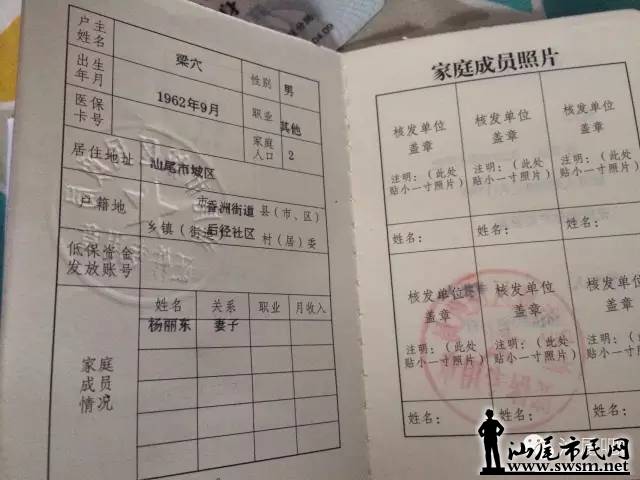 户主姓名 梁穴 性别 男
出生年月 1962年9月 职业 其他
医保卡号 家庭人口 2
居住地址 汕尾市城区
户籍地 市香洲街道县（市、区）
乡镇（街 后径社区 村（居）委
低保资金发放账号
家庭成员情况
姓名 关系 职业 月收入
杨丽东 妻子
家庭成员照片
核发单位盖章 核发单位盖章 核发单位盖章
注明：（此处贴小一寸照片） 注明：（此处贴小一寸照片） 注明：（此处贴小一寸照片）
姓名： 姓名： 姓名：
核发单位盖章 核发单位盖章 核发单位盖章
注明：（此处贴小一寸照片） 注明：（此处贴小一寸照片） 注明：（此处贴小一寸照片）
姓名： 姓名：
汕尾市民网
www.swsm.net